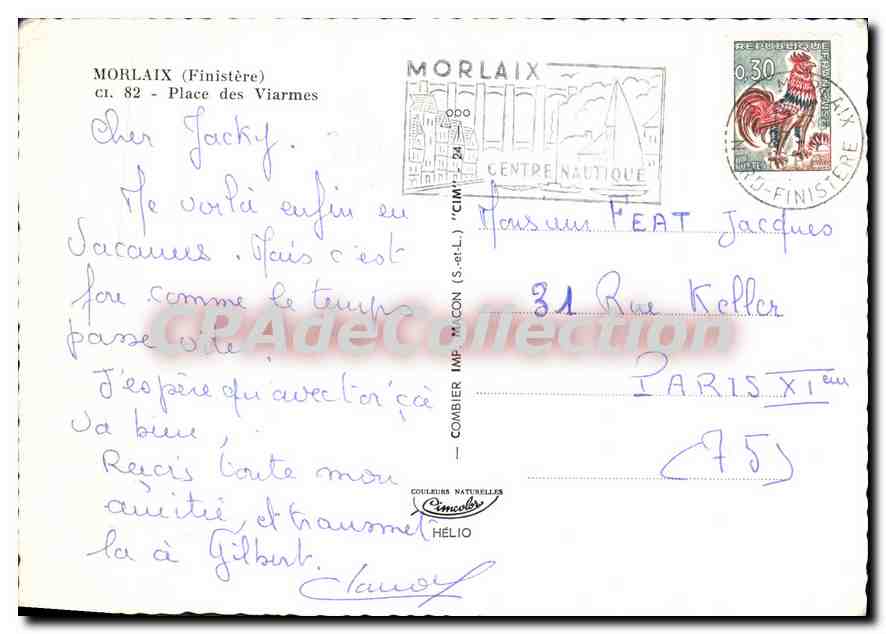 MORLAIX (Finistère)
CI. 82 - Place des Viarmes
Cher Jacky.
Me voilà enfin en
Vacances. Mais c'est
fou comme le temps
passe vite!
J'espère qu'avec toi çà
va bien,
Reçois toute mon
amitié, et transmet
la à Gilbert.
MORLAIX
CENTRE NAUTIQUE
REPUBLIQUE FRANÇAISE
0,30
MORLAIX
NORD-FINISTÈRE
Monsieur FEAT Jacques
31 Rue Keller
PARIS XIem
(75)
— COMBIER IMP. MACON (S.-et-L.) "CIM" - 24 —
COULEURS NATURELLES
Cimcolor
HÉLIO
CPAdeCollection